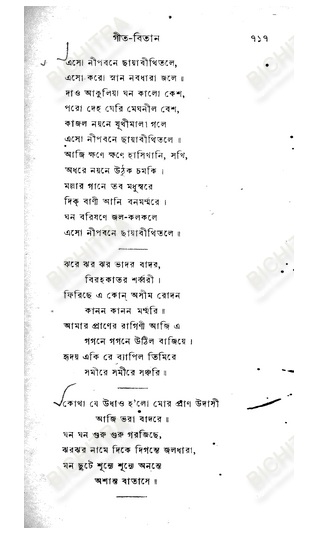 গীত-বিতান ৭১৭
এসো নীপবনে ছায়াবীথিতলে,
এসো করো স্নান নবধারা জলে॥
দাও আকুলিয়া ঘন কালো কেশ,
পরো দেহ ঘেরি মেঘনীল বেশ,
কাজল নয়নে যূথীমালা গলে
এসো নীপবনে ছায়াবীথিতলে॥
আজি ক্ষণে ক্ষণে হাসিখানি, সখি,
অধরে নয়নে উঠুক চমকি।
মল্লার গানে তব মধুস্বরে
দিক্ বাণী আনি বনমর্ম্মরে।
ঘন বরিষণে জল-কলকলে
এসো নীপবনে ছায়াবীথিতলে॥
ঝরে ঝর ঝর ভাদর বাদর,
বিরহকাতর শর্ব্বরী।
ফিরিছে এ কোন্ অসীম রোদন
কানন কানন মর্ম্মরি॥
আমার প্রাণের রাগিণী আজি এ
গগনে গগনে উঠিল বাজিয়ে।
হৃদয় একি রে ব্যাপিল তিমিরে
সমীরে সমীরে সঞ্চরি॥
কোথা যে উধাও হ'লো মোর প্রাণ উদাসী
আজি ভরা বাদরে॥
ঘন ঘন গুরু গুরু গরজিছে,
ঝরঝর নামে দিকে দিগন্তে জলধারা,
মন ছুটে শূন্যে শূন্যে অনন্তে
অশান্ত বাতাসে॥
BICHITRA